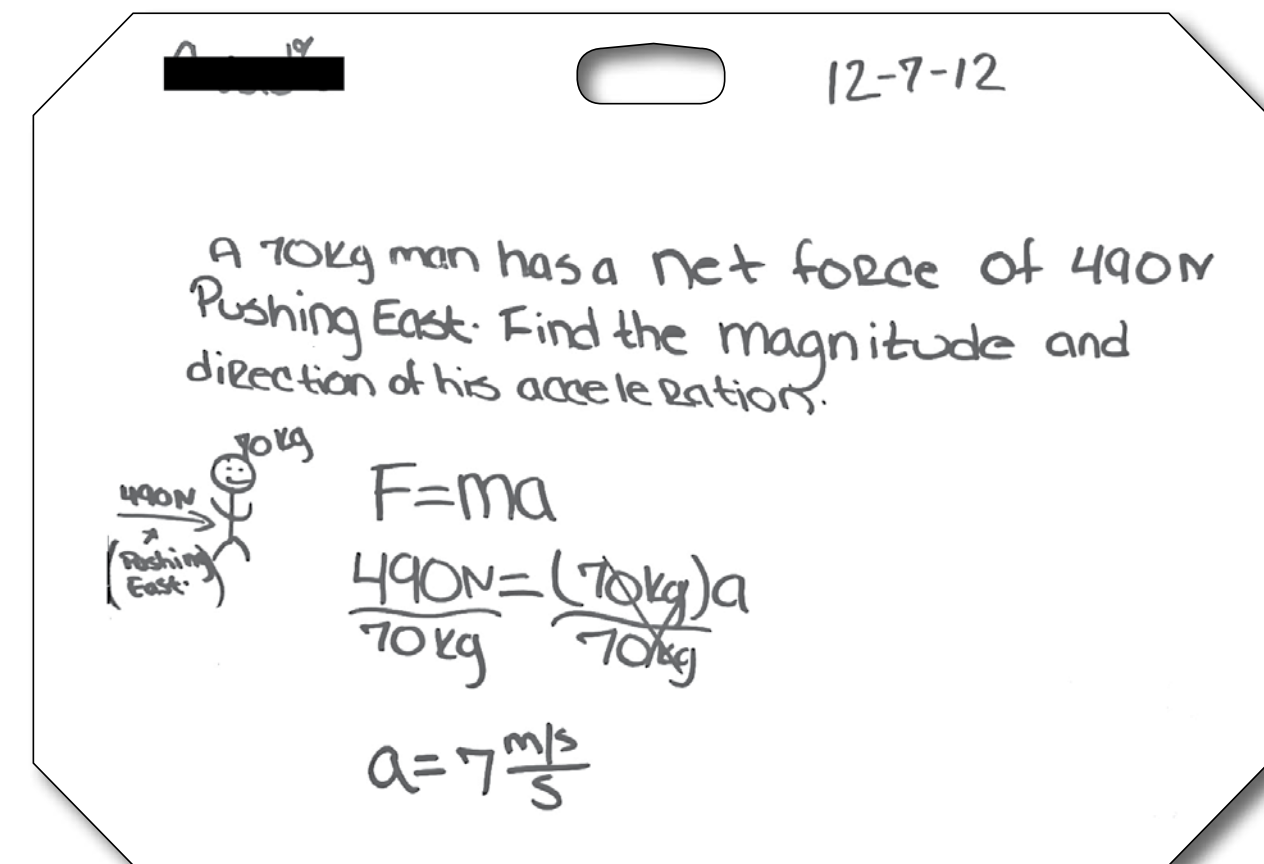 12-7-12
A 70kg man has a net force of 490N
Pushing East. Find the magnitude and
direction of his acceleration.
70kg
490N
(Pushing
East.)
F=ma
490N=(70kg)a
70kg 70kg
a=7 m/s
s